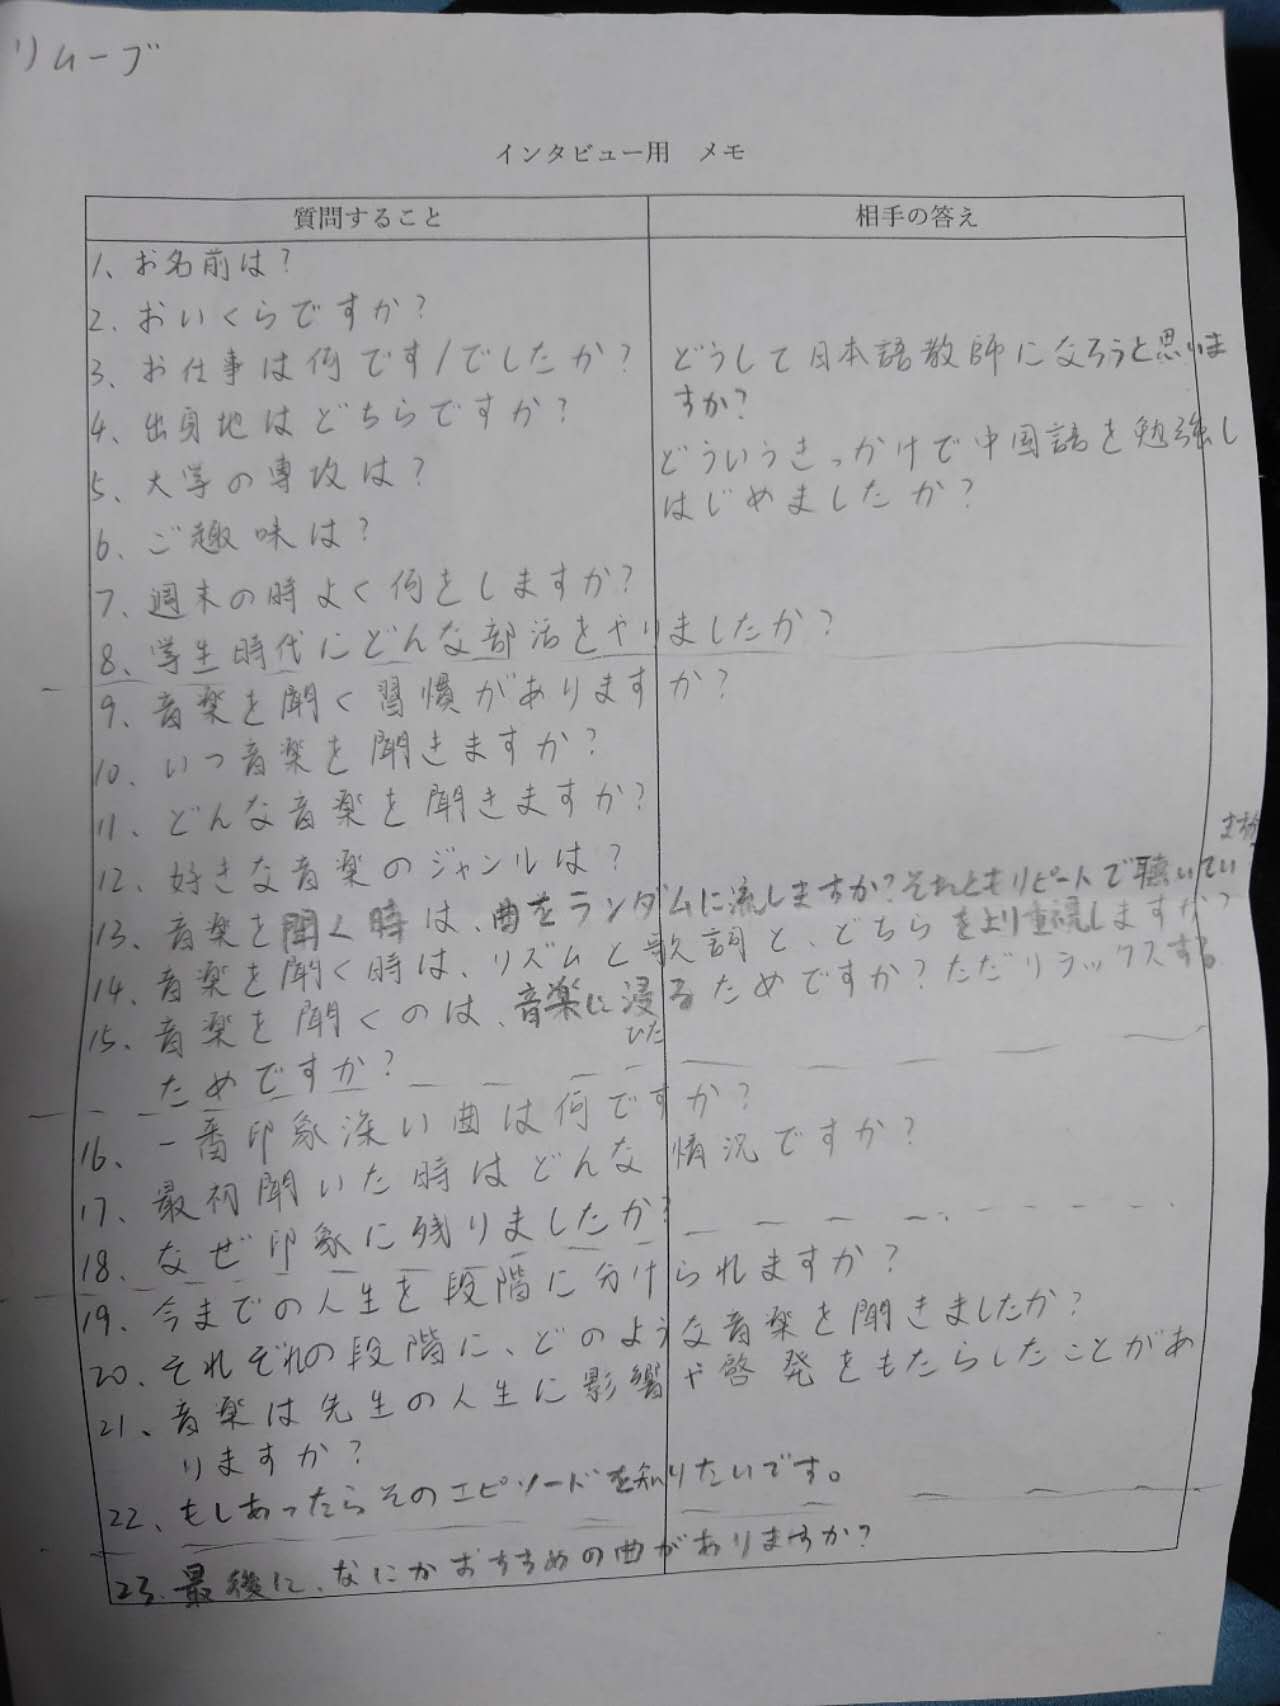 リムーブ
インタビュー用 メモ
質問すること 相手の答え
1、お名前は?
2、おいくらですか?
3、お仕事は何です/でしたか? どうして日本語教師になろうと思いま
すか?
4、出身地はどちらですか?
どういうきっかけで中国語を勉強し
5、大学の専攻は?
はじめましたか?
6、ご趣味は?
7、週末の時よく何をしますか?
8、学生時代にどんな部活をやりましたか?
9、音楽を聞く習慣がありますか?
10、いつ音楽を聞きますか?
11、どんな音楽を聞きますか?
12、好きな音楽のジャンルは?
13、音楽を聞く時は、曲をランダムに流しますか?それともリピートで聴いてい
14、音楽を聞く時は、リズムと歌詞と、どちらをより重視しますか?
15、音楽を聞くのは、音楽に浸るためですか?ただリラックスする
ひた
ためですか?
16、一番印象深い曲は何ですか?
17、最初聞いた時はどんな情況ですか?
18、なぜ印象に残りましたか?
19、今までの人生を段階に分けられますか?
20、それぞれの段階に、どのような音楽を聞きましたか?
21、音楽は先生の人生に影響や啓発をもたらしたことがあ
りますか?
22、もしあったらそのエピソードを知りたいです。
23、最後に、なにかおすすめの曲がありますか?